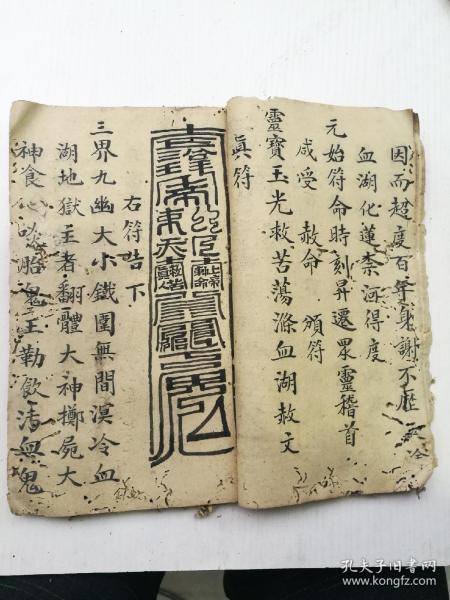 因而超度百年身謝不歷
血湖化蓮柰河得度
元始符命時刻昇遷眾靈稽首
咸受 赦命 頒符
靈寶玉光救苦蕩滌血湖赦文
眞符
右符告下
三界九幽大小鐵圍無間溟冷血
湖地獄主者翻體大神擲屍大
神食心吟胎鬼王勒飲清血鬼
孔夫子旧书网
www.kongfz.com